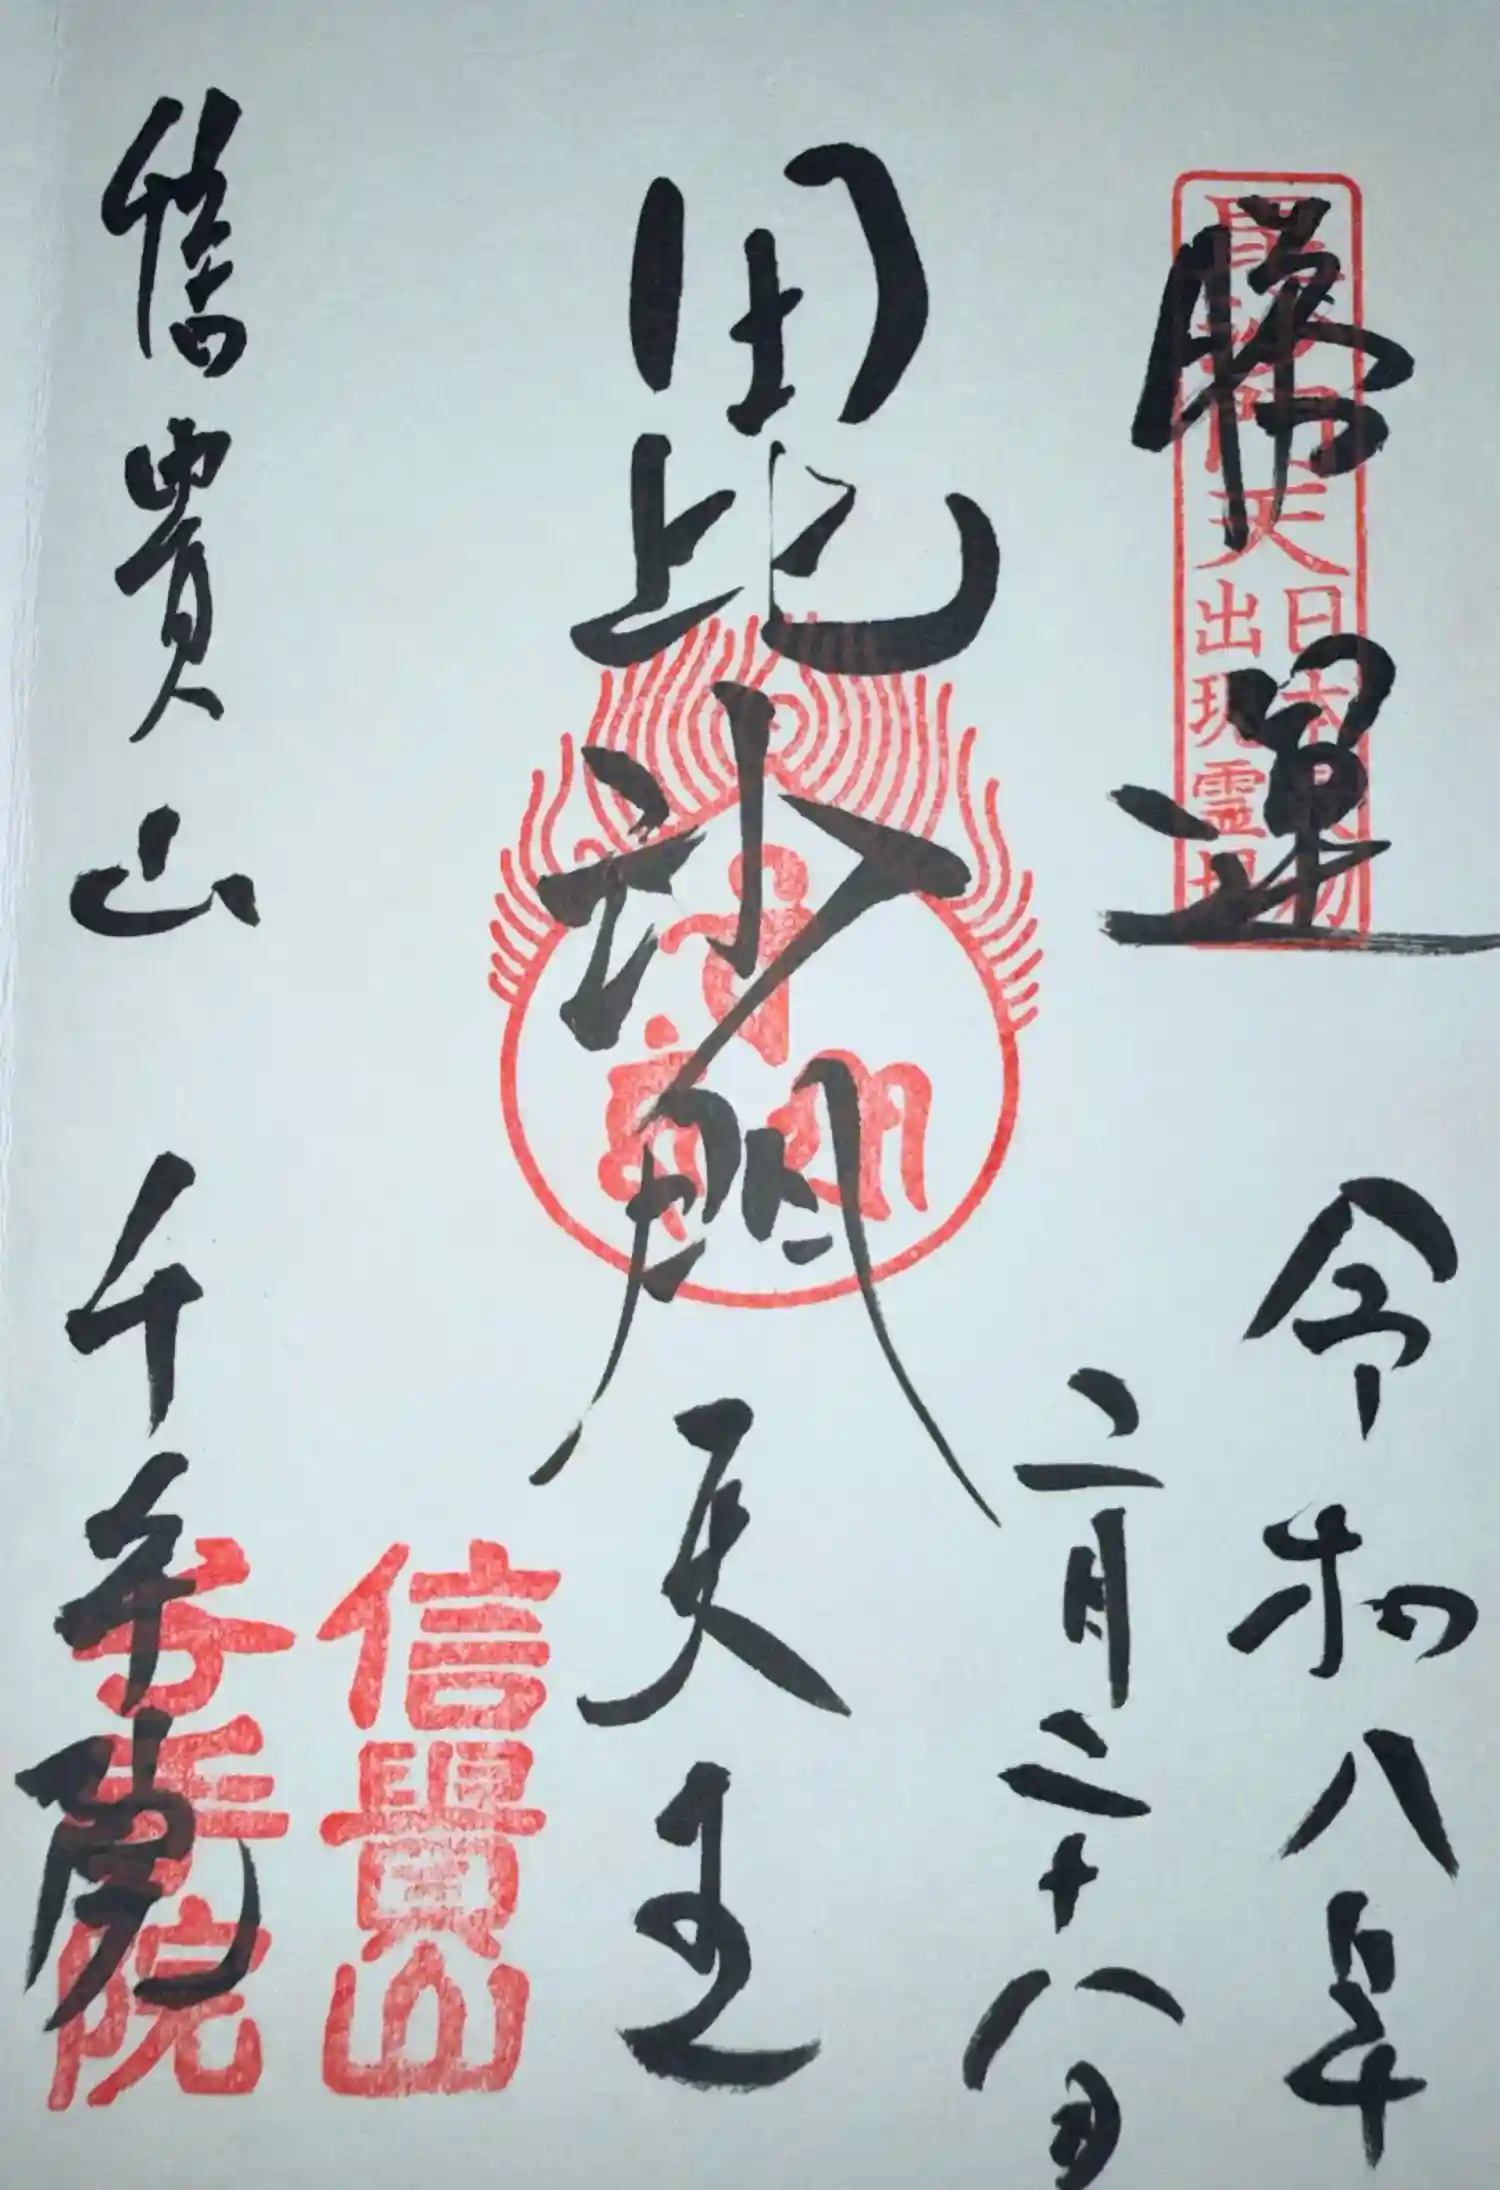 勝運
毘沙門天
日本最初
出現霊場
令和八年
二月二十八日
毘沙門天王
信貴山
千手院
信貴山
千手院